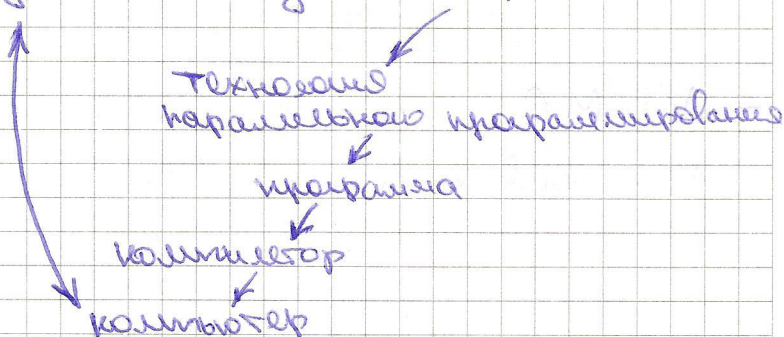 технология
паралельного программирования
программа
компилетор
компьютер